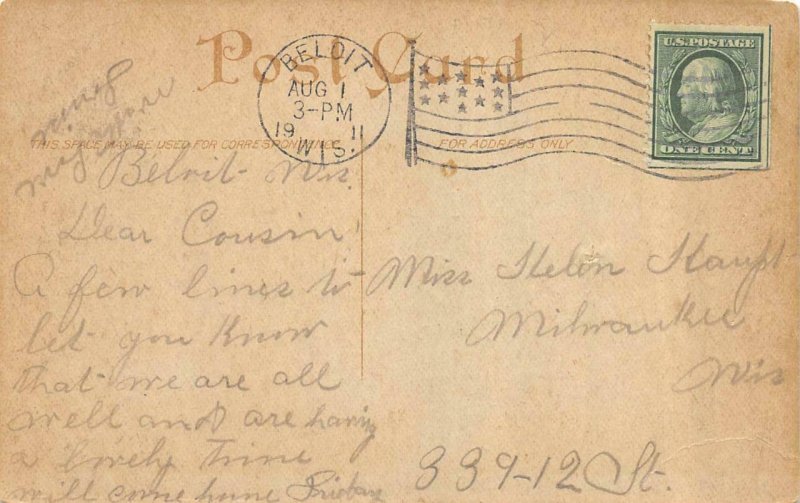 Post Card
BELOIT
AUG 1
3-PM
19 11
WIS.
U.S. POSTAGE
ONE CENT
THIS SPACE MAY BE USED FOR CORRESPONDENCE
FOR ADDRESS ONLY
Beloit Wis.
Dear Cousin
A few lines to
let you know
that we are all
well and are having
a lovely time
will come home Friday
Miss Helen Haupt
Milwaukee
Wis
339-12 St.